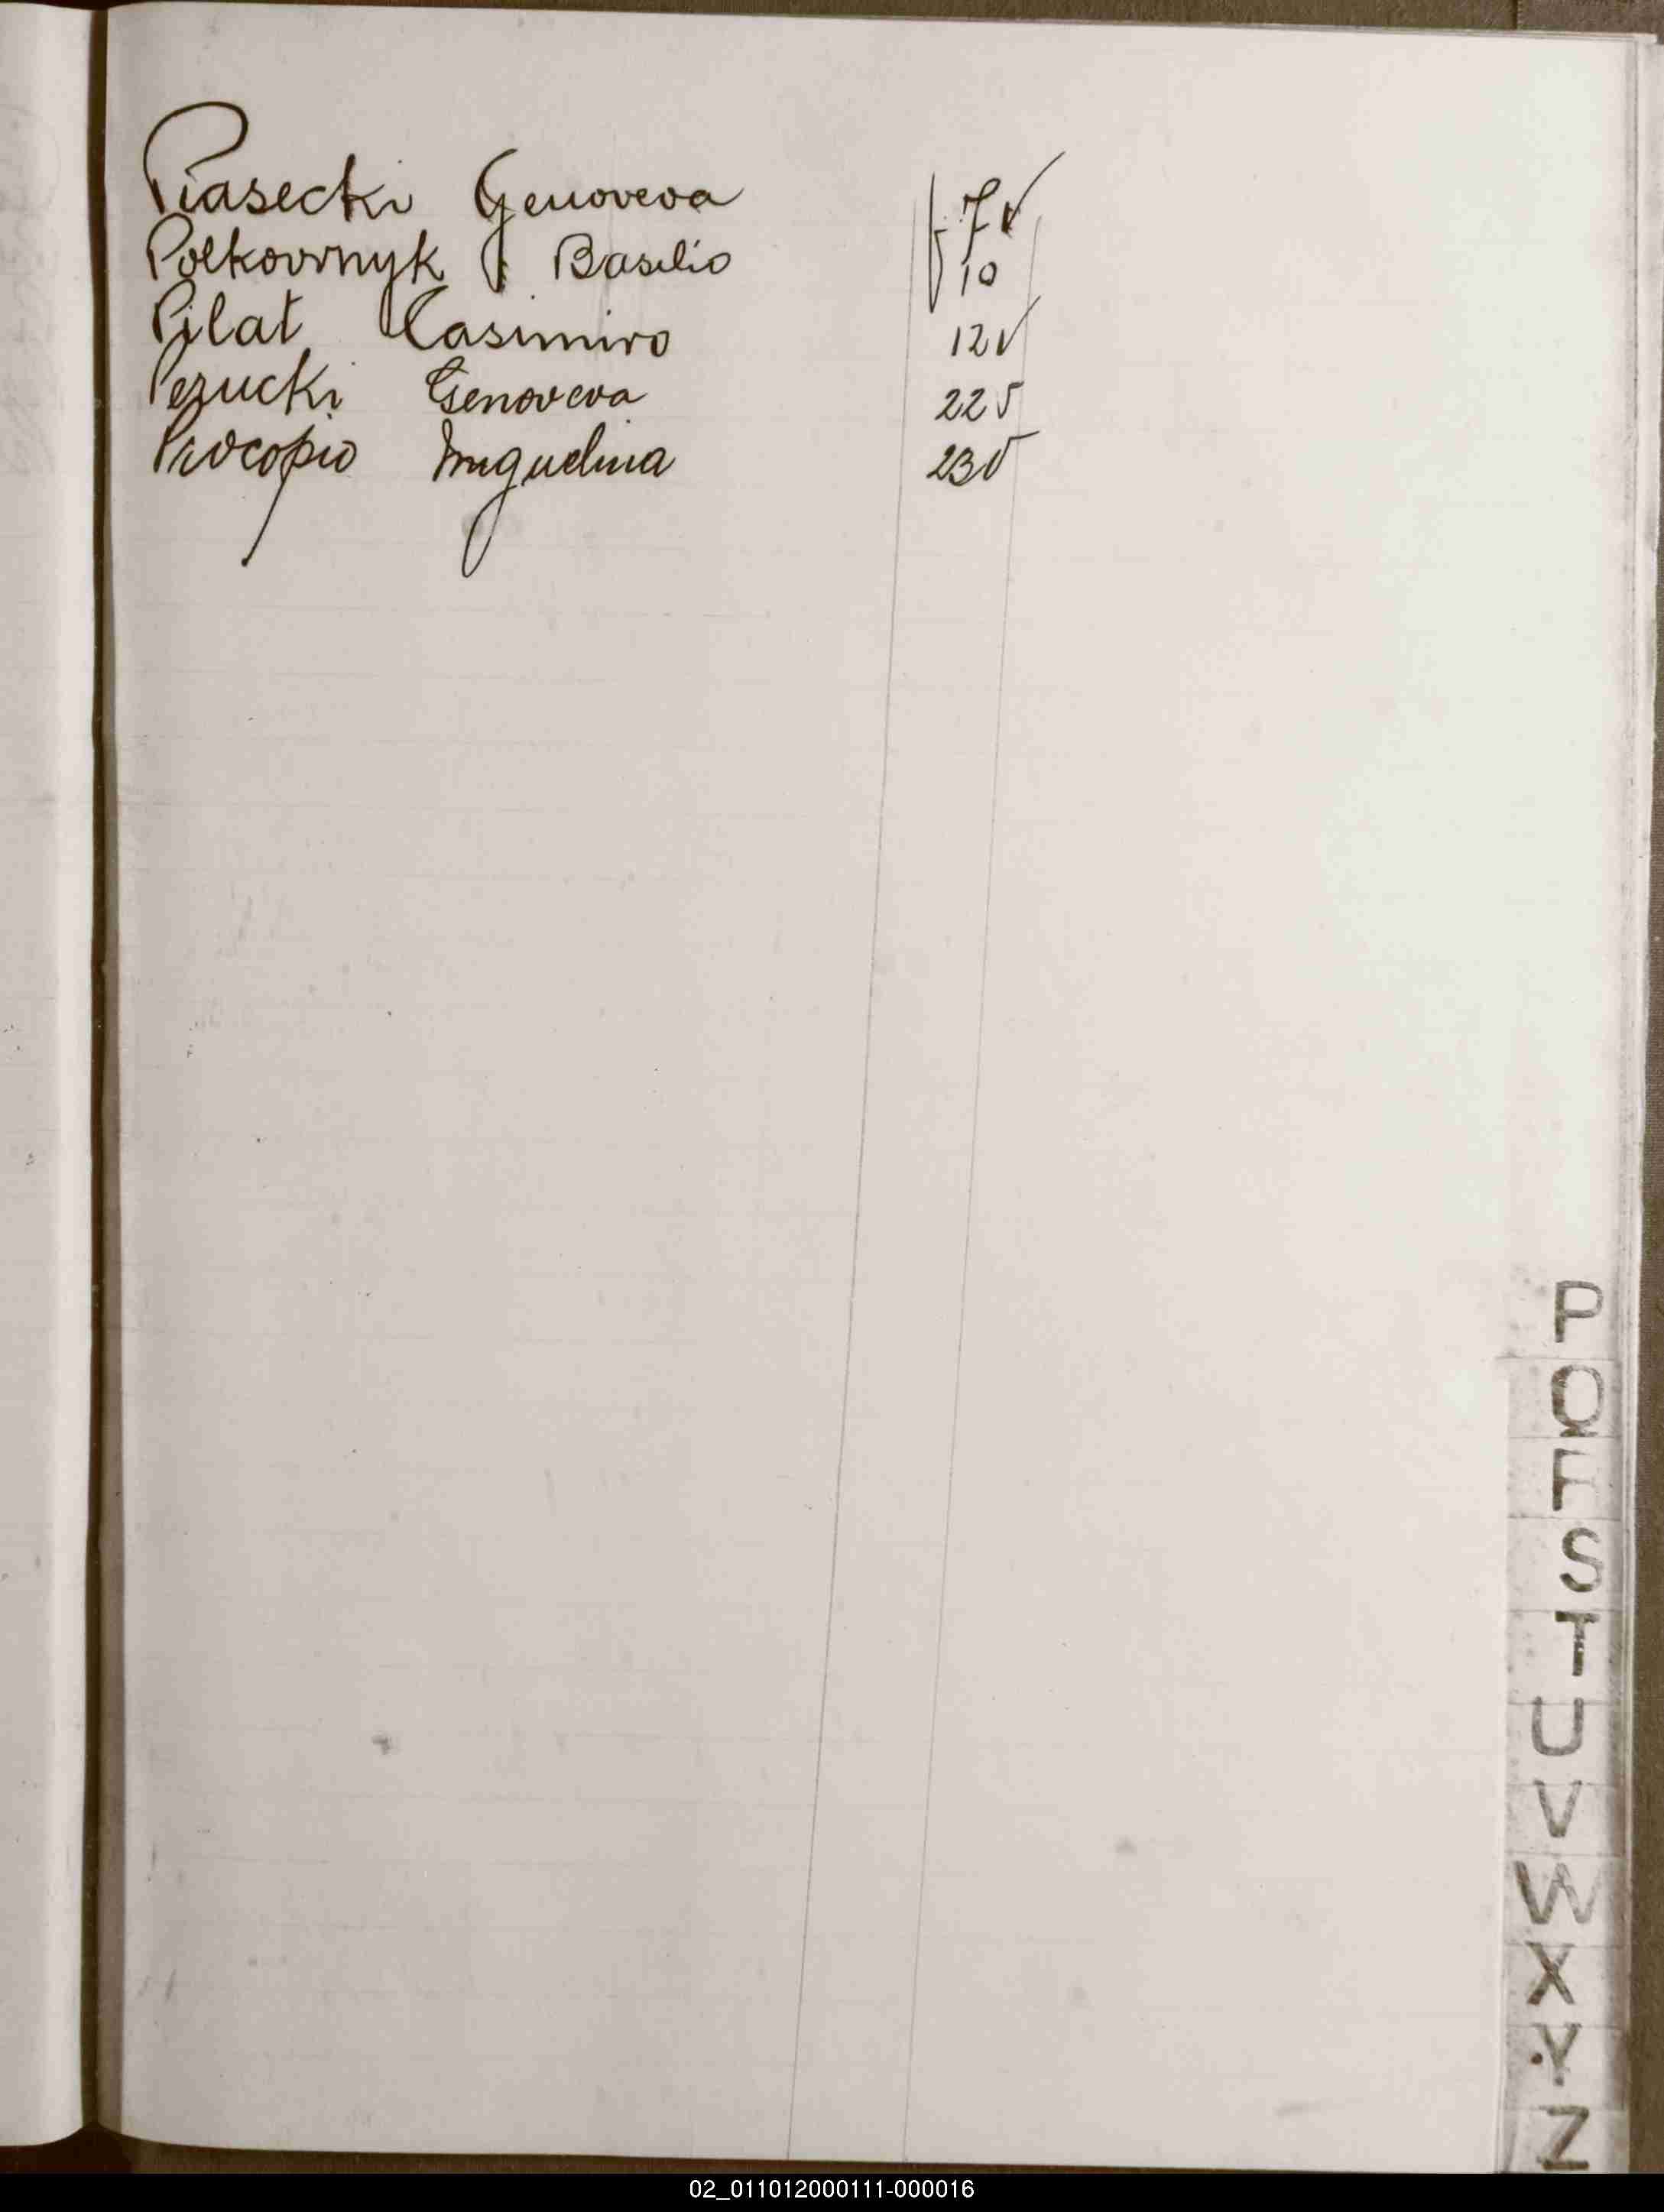 Piasecki Genoveva f. 7 v
Polkovnyk Basilio 10
Pilat Casimiro 12 v
Pezucki Genoveva 22 v
Procopio Miguelina 23 v
P
Q
R
S
T
U
V
W
X
Y
Z
02_011012000111-000016